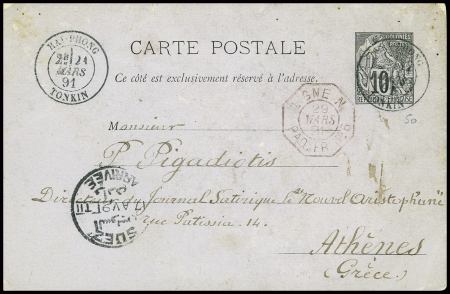 CARTE POSTALE
Ce côté est exclusivement réservé à l'adresse.
HAI-PHONG
21
MARS
91
TONKIN
COLONIES
10
LIGNE N
29
MARS
91
PAQ. FR.
50
Monsieur
P. Pigadiotis
Directeur du Journal Satirique le Nouvel Aristophane
rue Patissia. 14.
Athènes
(Grèce)
ARRIVÉE
17 AV 91 T II
SUEZ
السويس